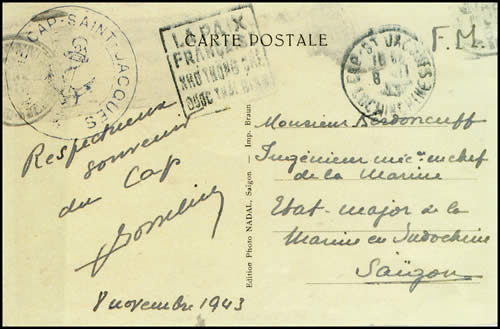 CAP-SAINT-JACQUES
LA PAIX
FRANÇAISE
QUỐC THÁI
CARTE POSTALE
F.M.
CAP ST JACQUES
COCHINCHINE
Respectueux
souvenir
du Cap
8 novembre 1943
Edition Photo NADAL, Saigon - Imp. Braun
Monsieur Kerdoncuff
Ingénieur méc^en en chef
de la Marine
Etat-major de la
Marine en Indochine
Saïgon